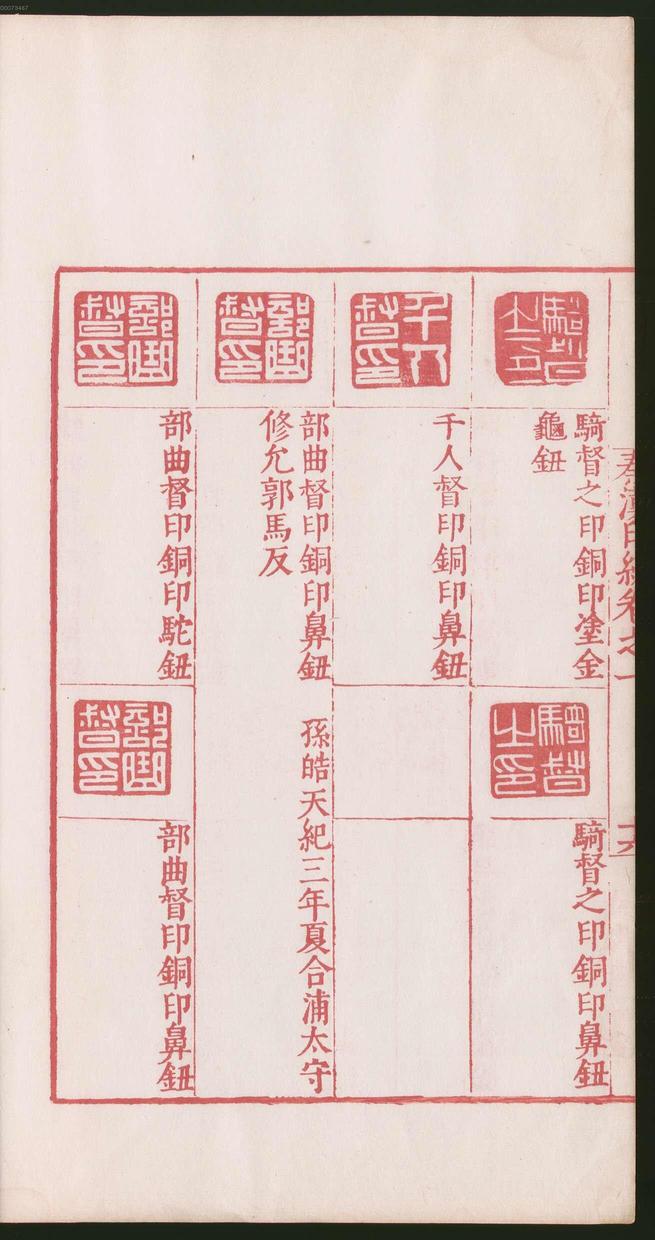 00073467
秦漢印統卷之一
十六
騎督之印
騎督之印銅印塗金
龜鈕
騎督之印
騎督之印銅印鼻鈕
千人督印
千人督印銅印鼻鈕
部曲督印
部曲督印銅印鼻鈕 孫皓天紀三年夏合浦太守
修允郭馬反
部曲督印
部曲督印銅印駝鈕
部曲督印
部曲督印銅印鼻鈕